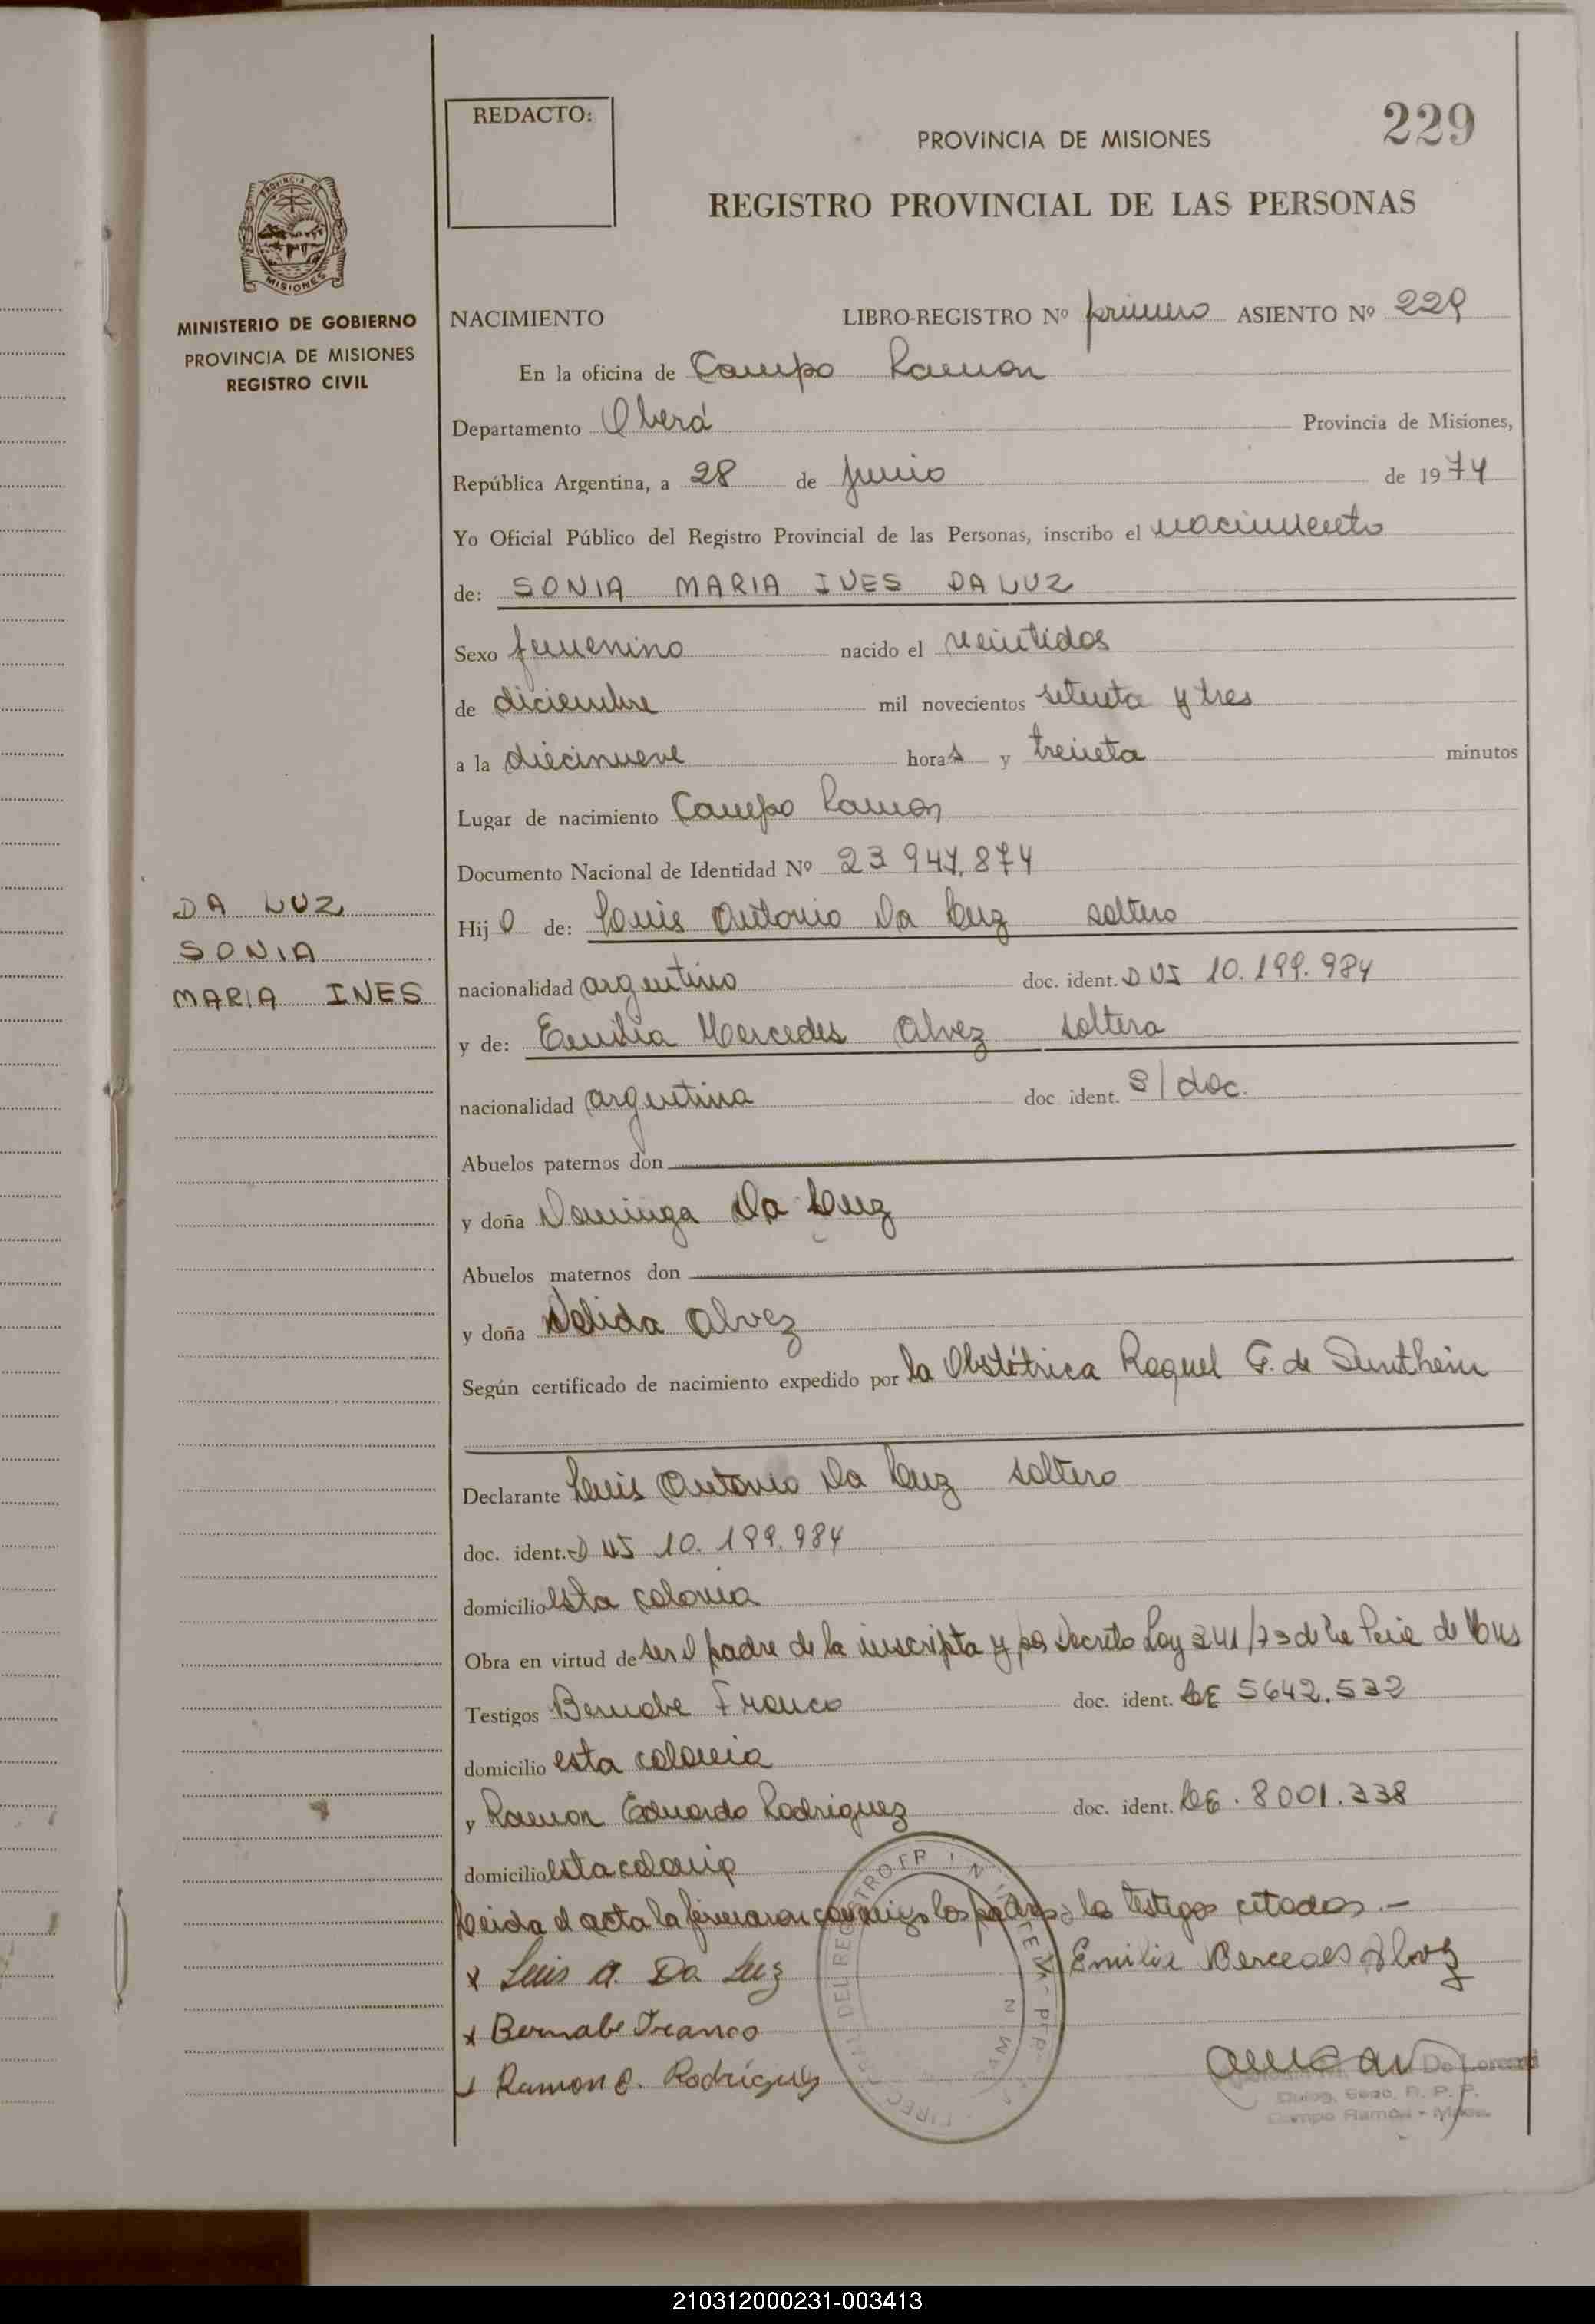 REDACTO:
229
PROVINCIA DE MISIONES
REGISTRO PROVINCIAL DE LAS PERSONAS
PROVINCIA DE
MISIONES
MINISTERIO DE GOBIERNO
PROVINCIA DE MISIONES
REGISTRO CIVIL
NACIMIENTO LIBRO-REGISTRO Nº primero ASIENTO Nº 229
En la oficina de Campo Ramon
Departamento Oberá Provincia de Misiones,
República Argentina, a 28 de junio de 1974
Yo Oficial Público del Registro Provincial de las Personas, inscribo el nacimiento
de: SONIA MARIA INES DA LUZ
Sexo femenino nacido el veintidos
de diciembre mil novecientos setenta y tres
a la diecinueve horas y treinta minutos
Lugar de nacimiento Campo Ramon
Documento Nacional de Identidad Nº 23 947.874
DA LUZ
SONIA
MARIA INES
Hij o de: Luis Antonio Da Luz soltero
nacionalidad argentino doc. ident. DNI 10.199.984
y de: Emilia Mercedes Alvez soltera
nacionalidad argentina doc ident. s/doc.
Abuelos paternos don
y doña Dominga Da Luz
Abuelos maternos don
y doña Delida Alvez
Según certificado de nacimiento expedido por la Obstétrica Raquel G. de Sunthein
Declarante Luis Antonio Da Luz soltero
doc. ident. DNI 10.199.984
domicilio esta colonia
Obra en virtud de ser el padre de la inscripta y por Decreto Ley 341/73 de la Pcia de Mns
Testigos Bernabe Franco doc. ident. LE 5642.532
domicilio esta colonia
y Ramon Eduardo Rodriguez doc. ident. LE. 8001.338
domicilio esta colonia
Leida el acta la firmaron conmigo los padres y los testigos citados.-
x Luis A. Da Luz Emilia Mercedes Alvez
x Bernabe Franco
x Ramon E. Rodriguez
De Lorenzi
R. P. P.
Campo Ramón - Mnes.
210312000231-003413